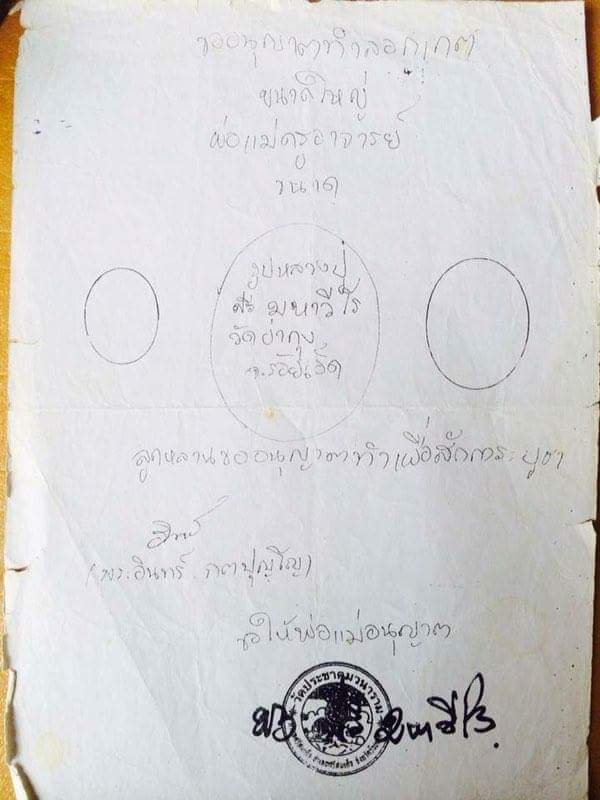 ขออนุญาตทำลอกเกต
ขนาดใหญ่
พ่อแม่ครูอาจารย์
ขนาด
รูปหลวงปู่
ศรี มหาวีโร
วัดป่ากุง
จ.ร้อยเอ็ด
ลูกหลานขออนุญาตทำเพื่อสักการะบูชา
(พระอินทร์ กตปุญฺโญ)
ขอให้พ่อแม่อนุญาต
วัดประชาคมวนาราม
มหาวีโร